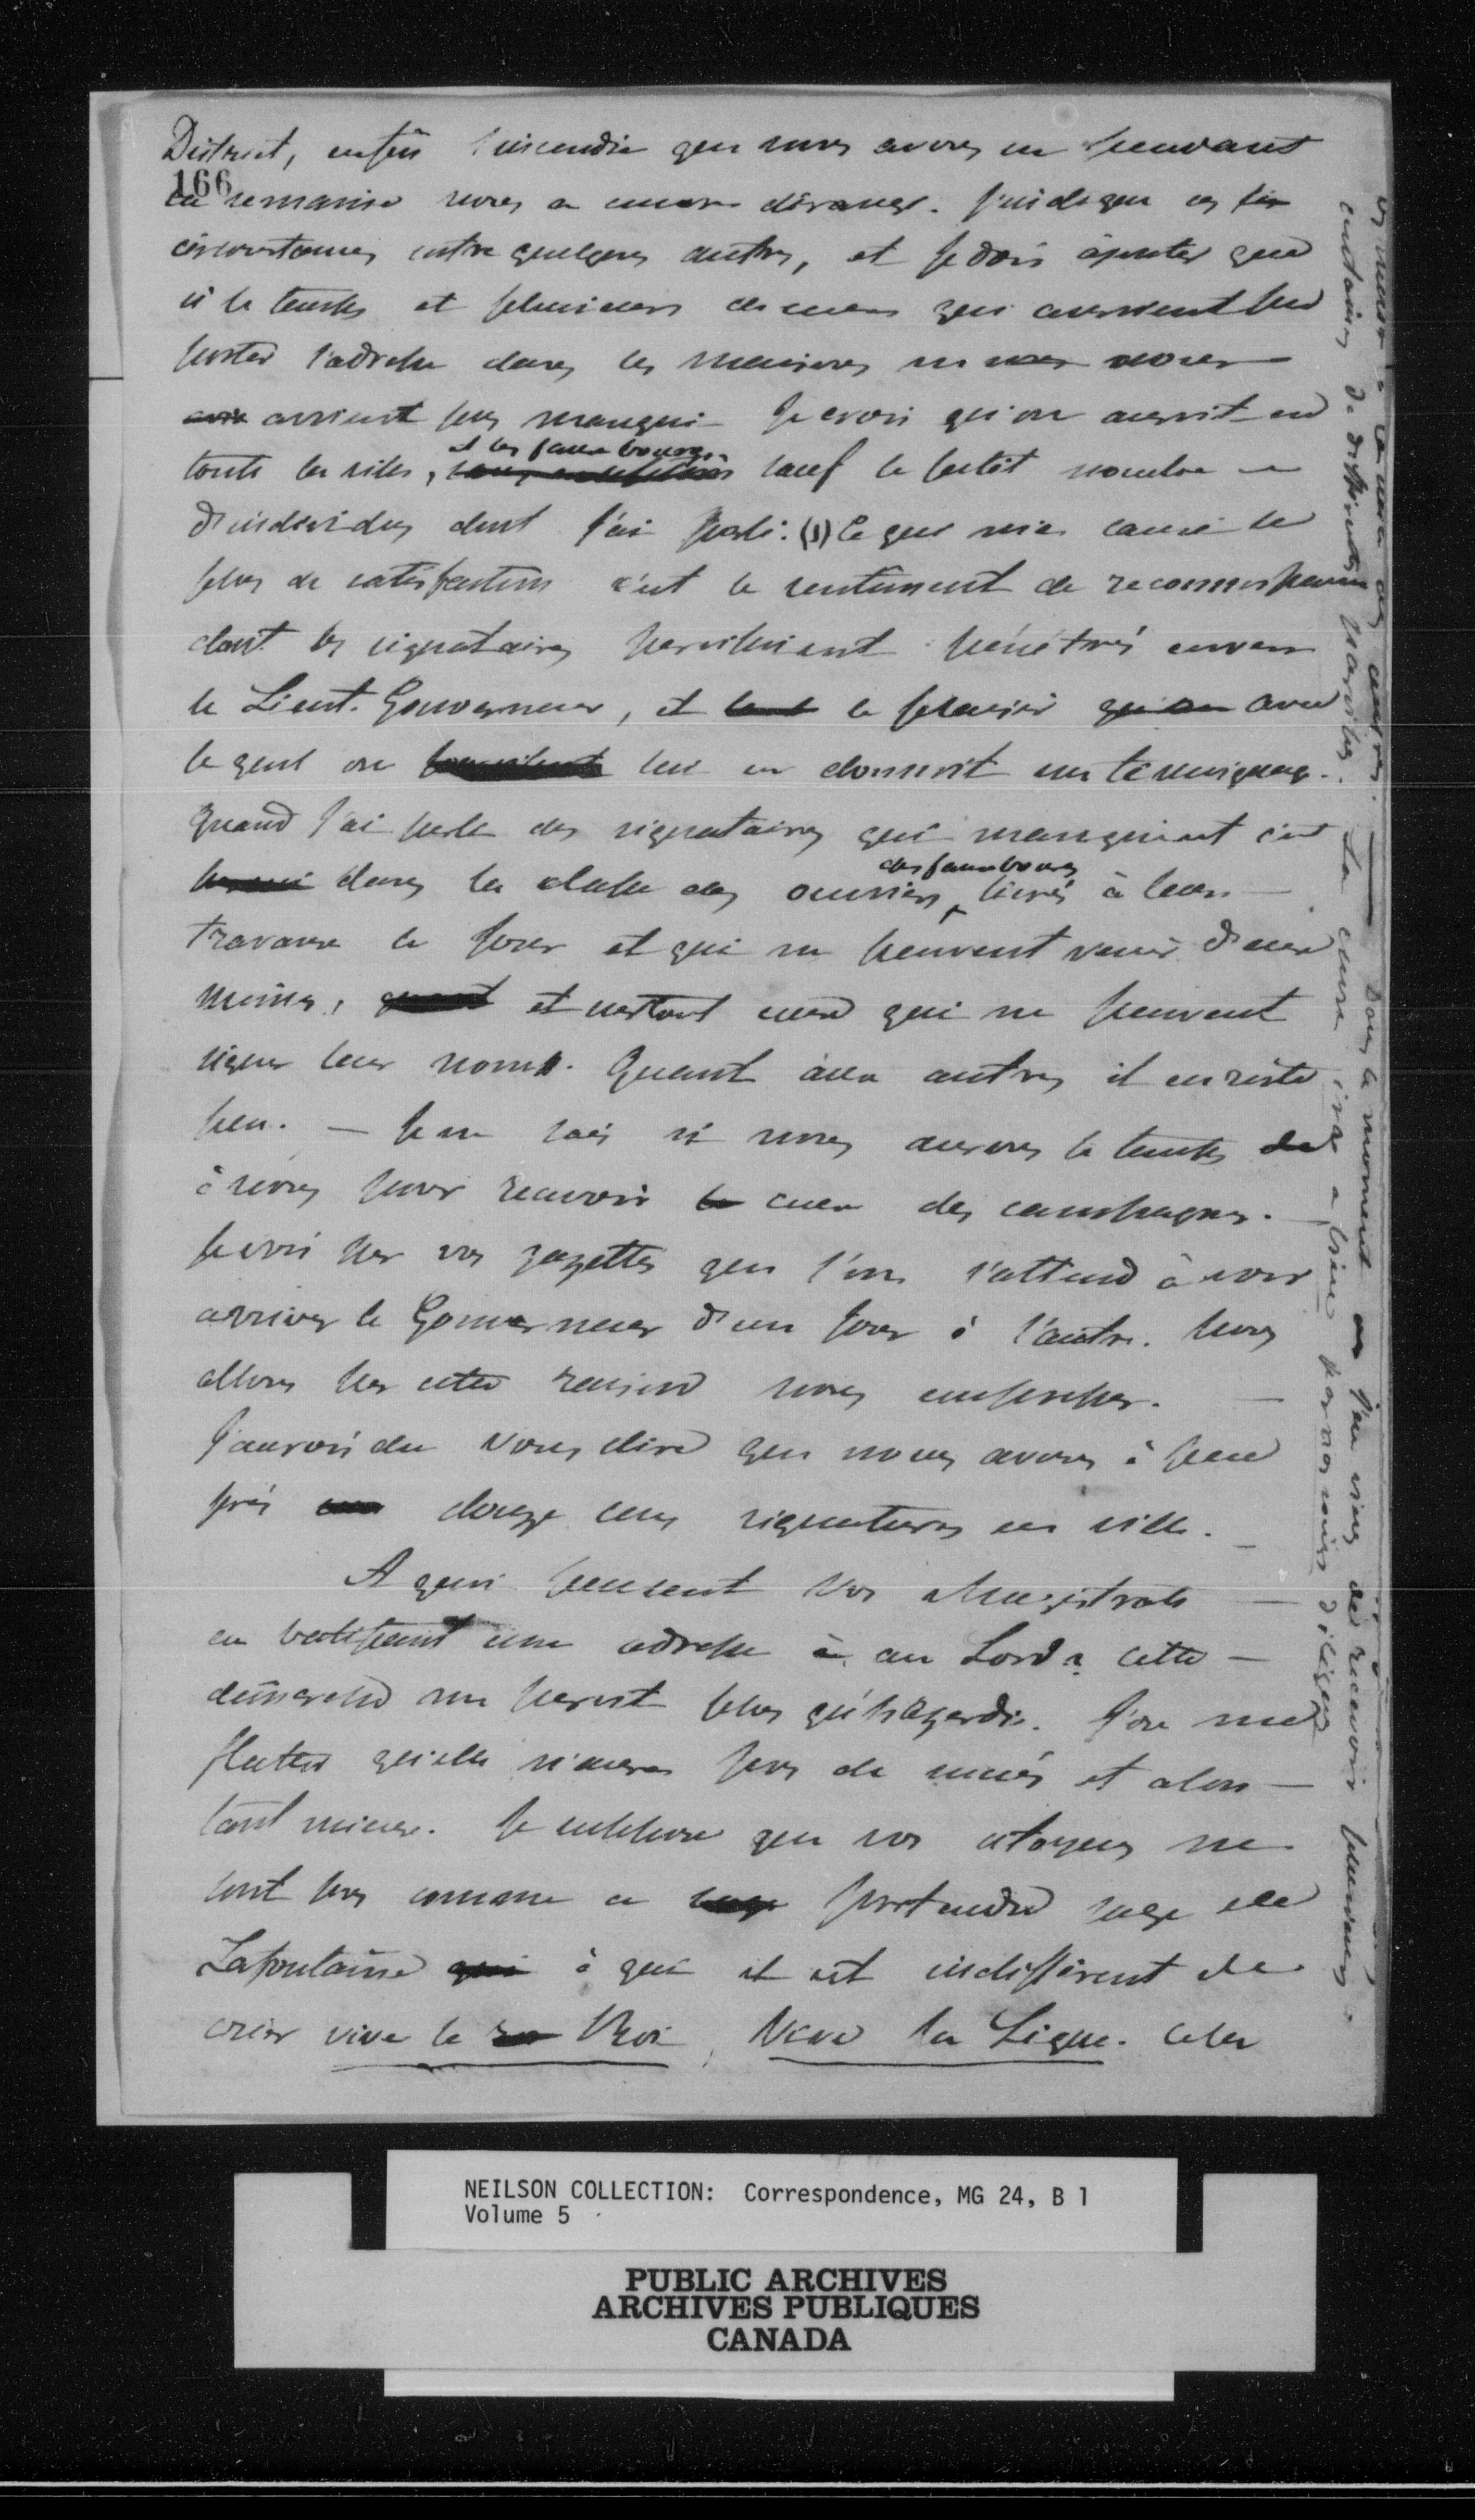 District, enfin l'incendie que nous avons eu pendant
166
la semaine nous a encore dérangé. J'indique ces
circonstances entre quelques autres, et je dois ajouter que
si le temps et plusieurs de ceux qui auroient pu
porter l'adresse dans les maisons ne nous
avoient pas manqué Je crois qu'on auroit eu
et les fauxbourgs
toute la ville, sauf le petit nombre
d'individus dont j'ai parlé. (1) Ce qui m'a causé le
plus de satisfaction c'est le sentiment de reconnoissance
dont les signataires paroissoient pénétrés envers
le Lieut. Gouverneur, et le plaisir avec
lequel on lui en donnoit un témoignage.
Quand j'ai parlé des signataires qui manquoient c'est
des fauxbourgs
dans la classe des ouvriers livrés à leurs
travaux le jour et qui ne peuvent venir d'eux
mêmes, et surtout ceux qui ne peuvent
signer leur nom. Quant aux autres il en reste
peu. — Je ne sais si nous aurons le temps
à nous pour recevoir ceux des campagnes.
Je vois par vos gazettes que l'on s'attend à voir
arriver le Gouverneur d'un jour à l'autre. Nous
allons par cette raison nous empresser.
J'aurois du vous dire que nous avons à peu
près douze cens signatures en ville.
A quoi pensent vos Magistrats
en votant une adresse à au Lord? cette
démarche me paroit plus qu'hazardée. J'ose me
flatter qu'elle n'aura pas de succès et alors
tant mieux. Je suppose que vos citoyens ne
sont pas comme ce prétendu sage de
Lafontaine à qui il est indifférent de
crier vive le Roi, Vive la Ligue. Cela
Dans le moment je viens de recevoir plusieurs
de différentes paroisses. La chose ira bien
NEILSON COLLECTION: Correspondence, MG 24, B 1
Volume 5
PUBLIC ARCHIVES
ARCHIVES PUBLIQUES
CANADA